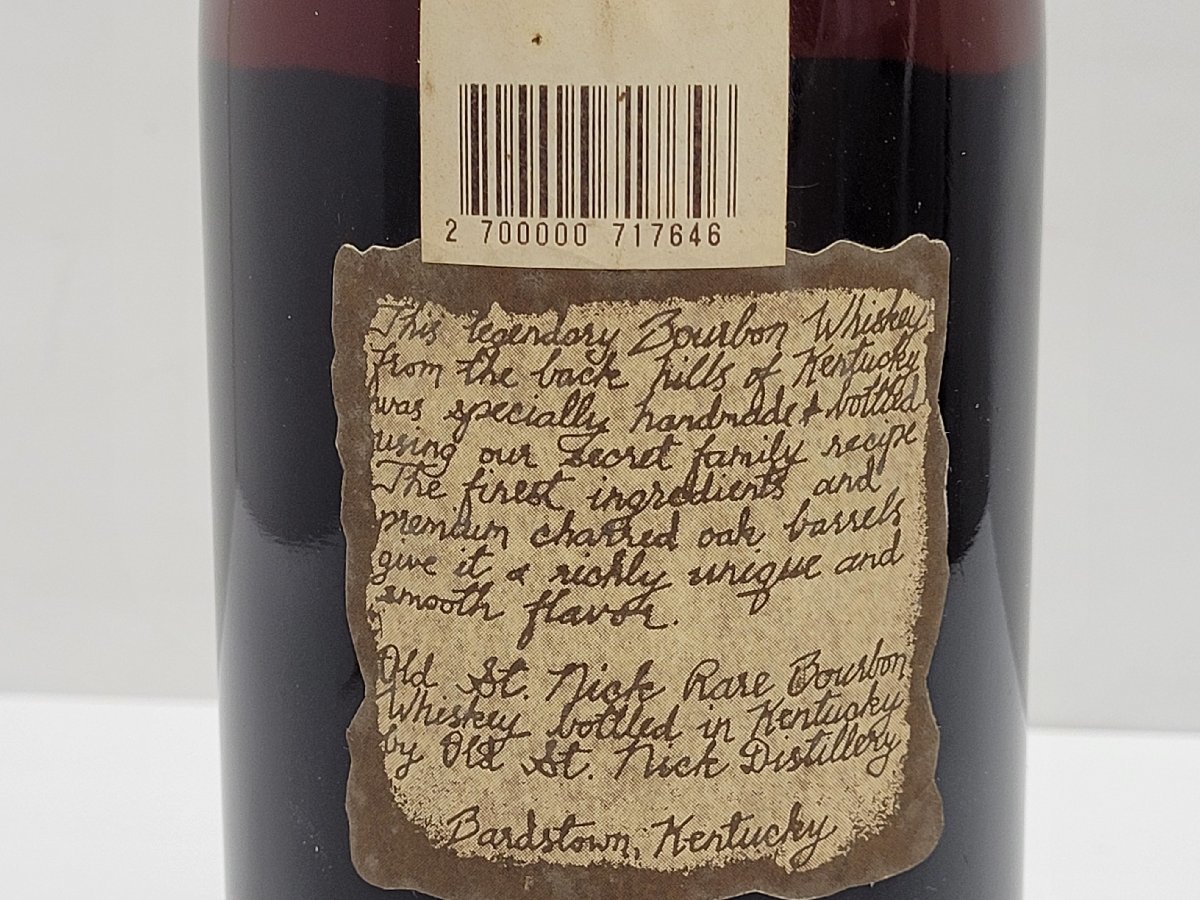 2 700000 717646
This legendary Bourbon Whiskey
from the back hills of Kentucky
was specially handmade & bottled
using our secret family recipe
The finest ingredients and
premium charred oak barrels
give it a richly unique and
smooth flavor.
Old St. Nick Rare Bourbon
Whiskey bottled in Kentucky
by Old St. Nick Distillery
Bardstown, Kentucky